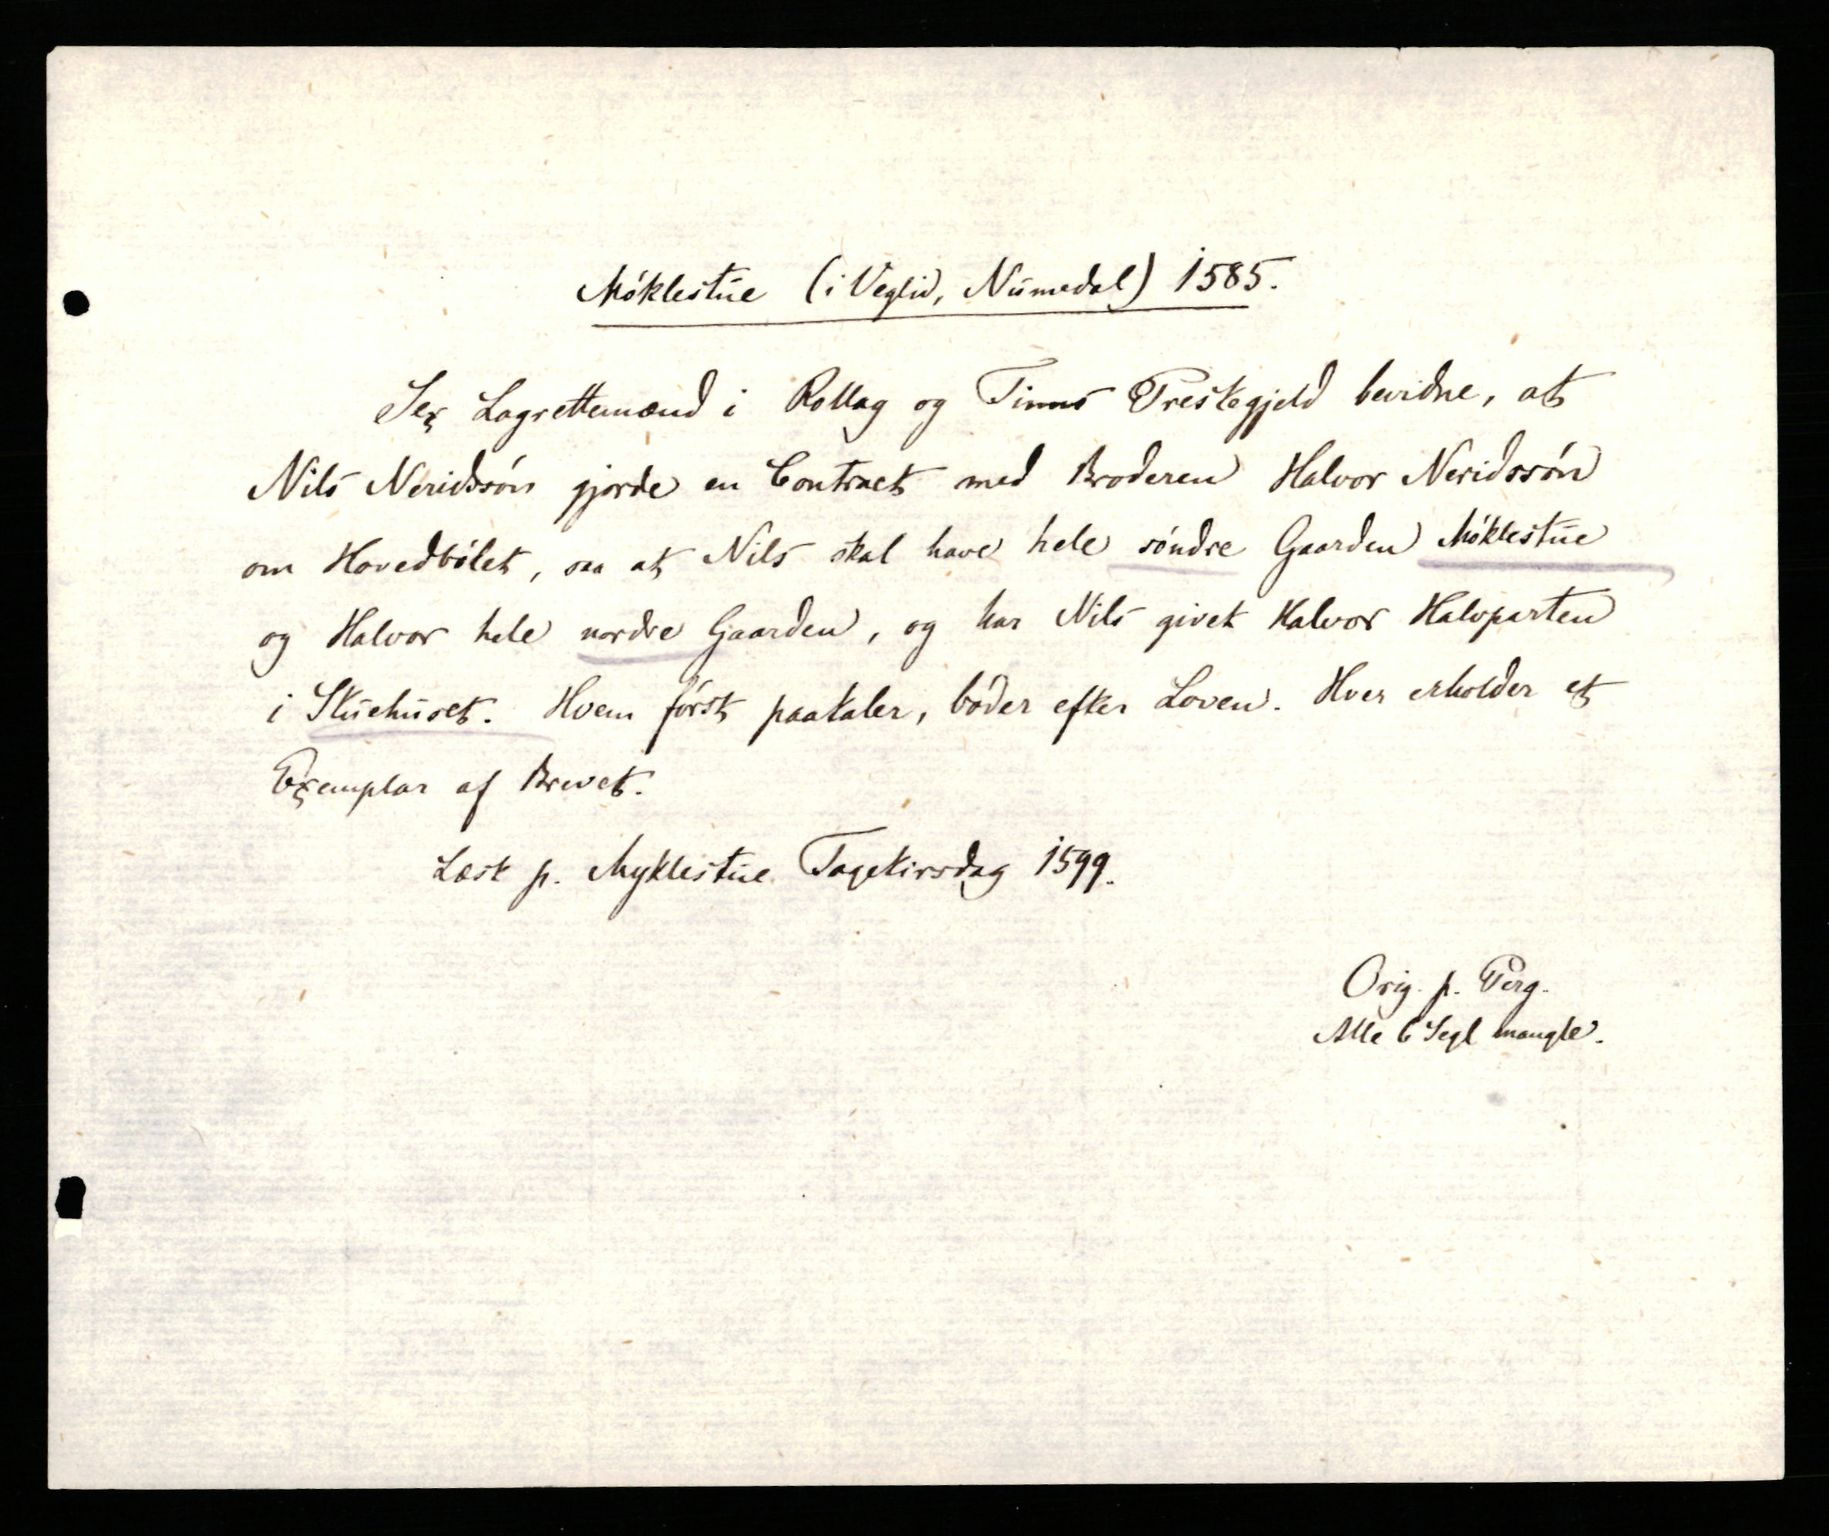 Móklestue (i Veglid, Numedal) 1585.
Sex Lagrettemænd i Rollag og Tinns Prestegjeld bevidne, at
Nils Neridssón gjorde en Contract med Broderen Halvor Neridssón
om Hovedbólet, saa at Nils skal have hele søndre Gaarden Móklestue
og Halvor hele nordre Gaarden, og har Nils givet Halvor Halvparten
i Skuehuset. Hvem først paataler, bøder efter Loven. Hver erholder et
Exemplar af Brevet.
Læst p. Myklestue 1599.
Orig. p. Perg.
Alle 6 Segl mangle.